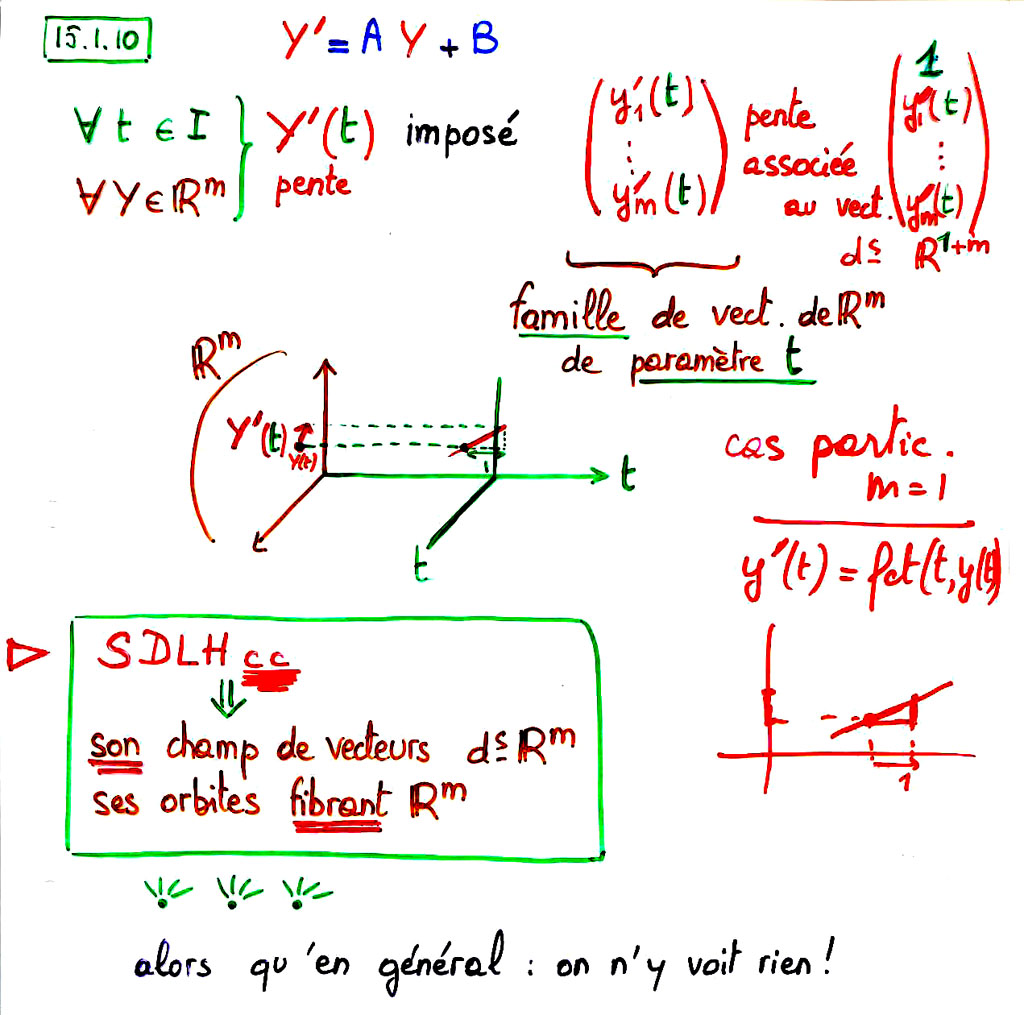 15.1.10
Y' = A Y + B
∀ t ∈ I
∀ Y ∈ ℝᵐ
Y'(t) imposé
pente
y'₁(t)
⋮
y'm(t)
pente
associée
au vect.
dˢ ℝ¹⁺ᵐ
1
y'₁(t)
⋮
y'm(t)
famille de vect. de ℝᵐ
de paramètre t
ℝᵐ
Y'(t)
Y(t)
1
t
t
cas partic.
m = 1
y'(t) = fct(t, y(t)
1
SDLH cc
⇓
son champ de vecteurs dˢ ℝᵐ
ses orbites fibrant ℝᵐ
alors qu'en général : on n'y voit rien !